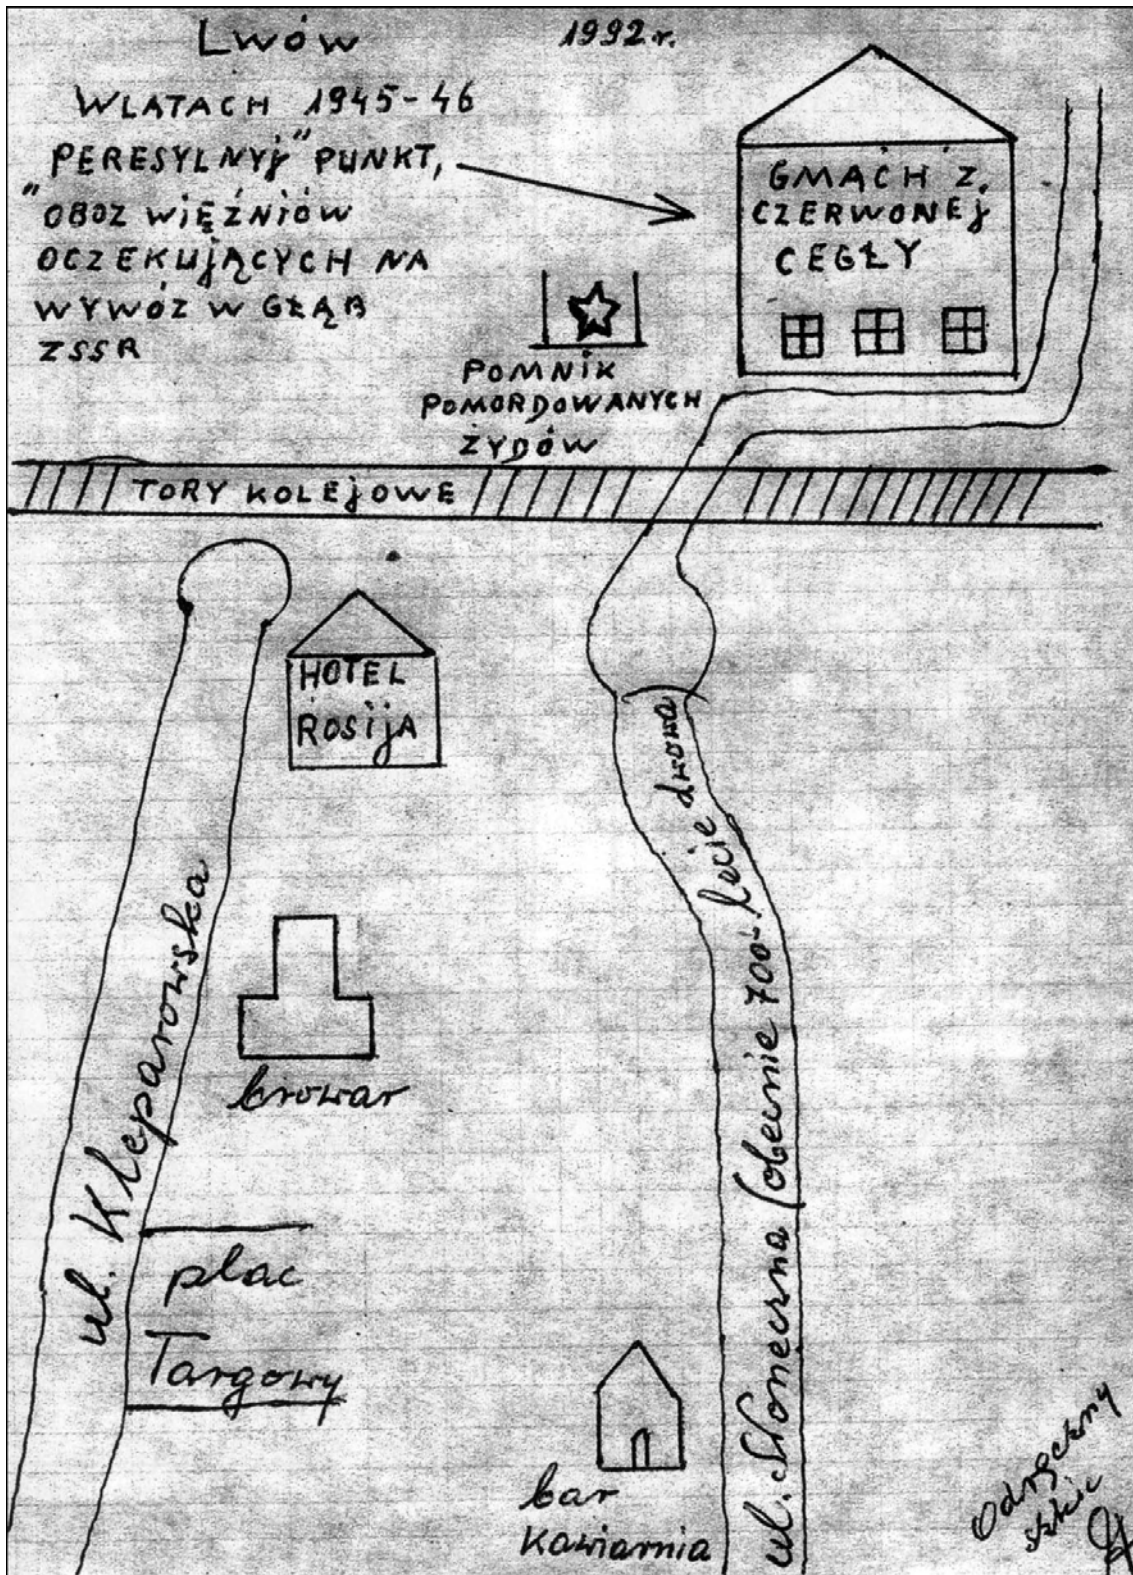 Lwów
1992 r.
W LATACH 1945-46
PERESYLNYj" PUNKT,
"OBOZ WIĘŹNIÓW
OCZEKUjĄCYCH NA
WYWÓZ W GŁĄB
ZSSR
GMACH Z.
CZERWONEj
CEGŁY
POMNIK
POMORDOWANYCH
ŻYDÓW
TORY KOLEjOWE
HOTEL
ROSIjA
ul. Kleparowska
browar
plac
Targowy
bar
kawiarnia
ul. Słoneczna (obecnie 700-lecie Lwowa
Odręczny
szkic